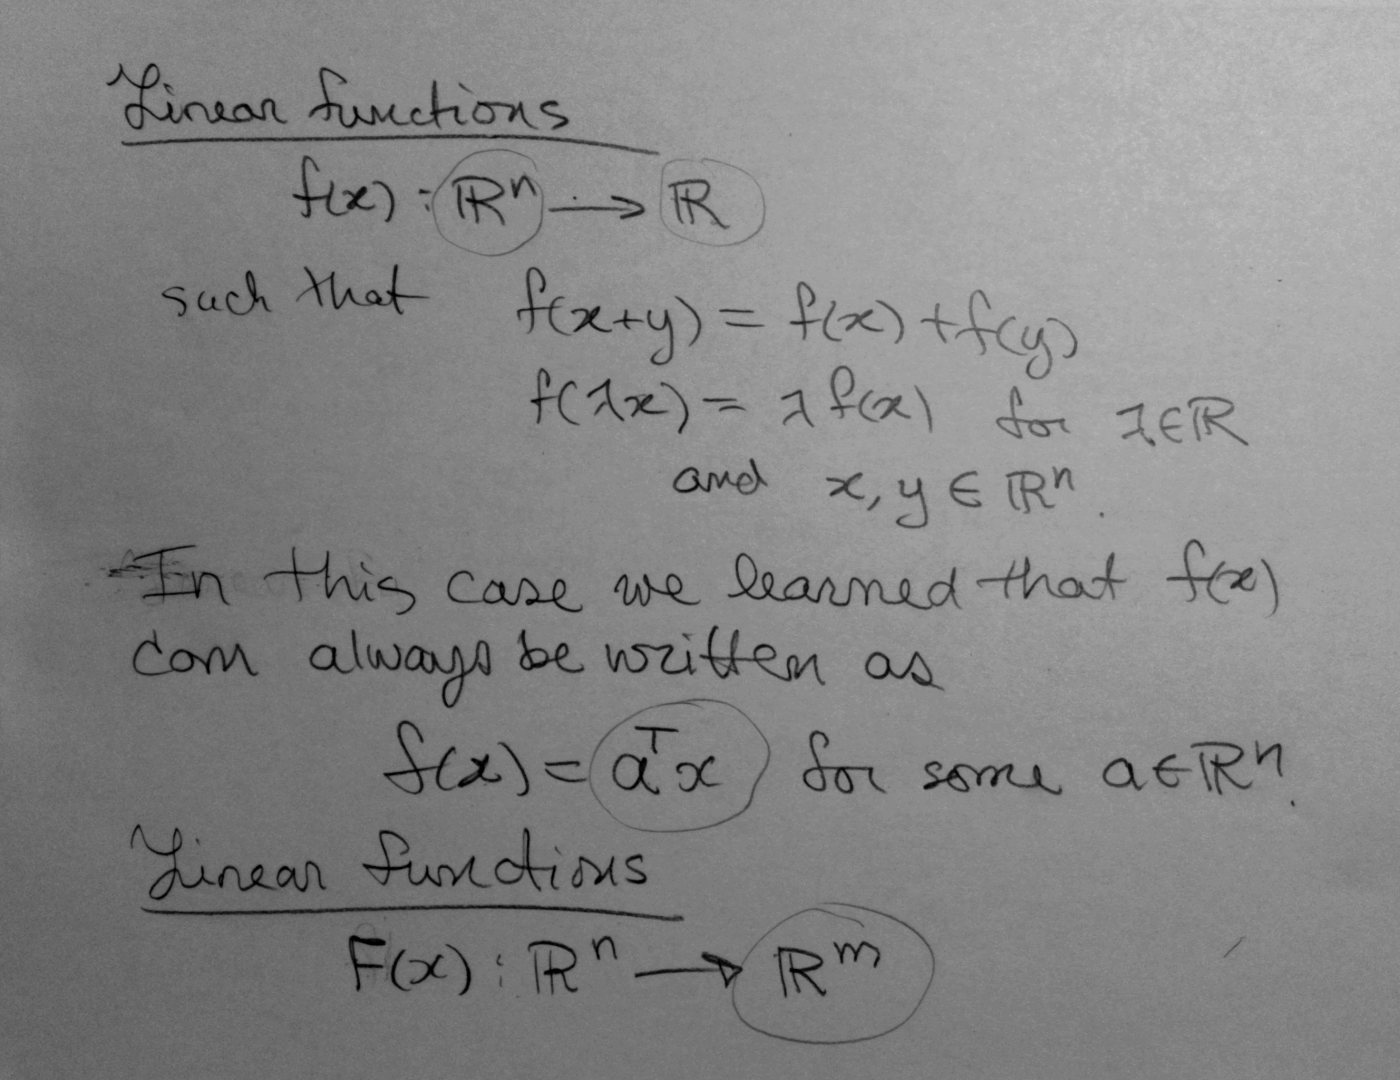 Linear functions
f(x) : ℝⁿ → ℝ
such that f(x+y) = f(x) + f(y)
f(λx) = λ f(x) for λ∈ℝ
and x, y ∈ ℝⁿ.
In this case we learned that f(x)
can always be written as
f(x) = aᵀx for some a∈ℝⁿ.
Linear functions
F(x) : ℝⁿ → ℝᵐ